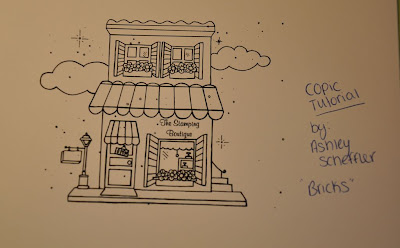 The Stamping
Boutique
COPIC
Tutorial
by:
Ashley
Scheffler
"Bricks"